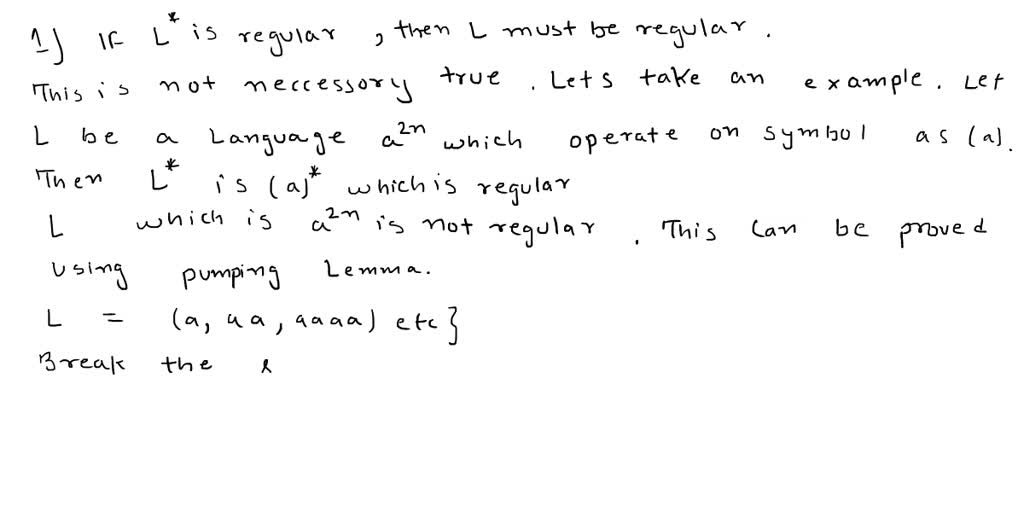 1) IF L* is regular, then L must be regular.
This is not neccessory true. Lets take an example. Let
L be a Language a²ⁿ which operate on symbol as (a).
Then L* is (a)* which is regular
L which is a²ⁿ is not regular. This can be proved
using pumping Lemma.
L = (a, aa, aaaa) etc}
Break the